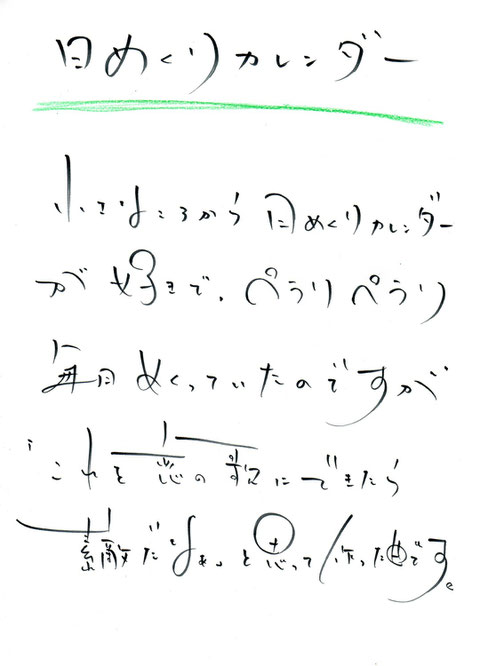 日めくりカレンダー
小さなころから日めくりカレンダー
が好きで、ぺらりぺらり
毎日めくっていたのですが
「これを恋の歌にできたら
素敵だなぁ」と思って作った曲です。